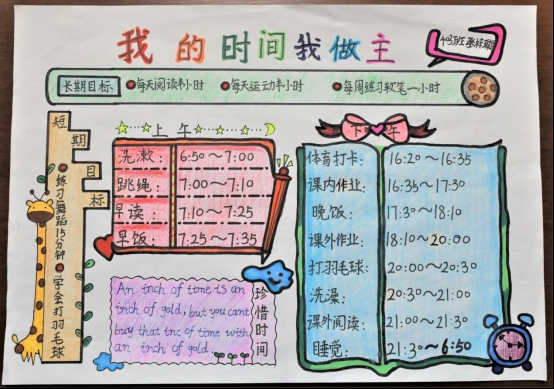 我的时间我做主
4(3)班
长期目标
每天阅读半小时
每天运动半小时
每周练习软笔一小时
短期目标
练习舞蹈15分钟
学会打羽毛球
上午
洗漱: 6:50~7:00
跳绳: 7:00~7:10
早读: 7:10~7:25
早饭: 7:25~7:35
An inch of time is an
inch of gold, but you cant
buy that inc of time with
an inch of gold.
珍惜时间
下午
体育打卡: 16:20~16:35
课内作业: 16:35~17:30
晚饭: 17:30~18:10
课外作业: 18:10~20:00
打羽毛球: 20:00~20:30
洗澡: 20:30~21:00
课外阅读: 21:00~21:30
睡觉: 21:30~6:50